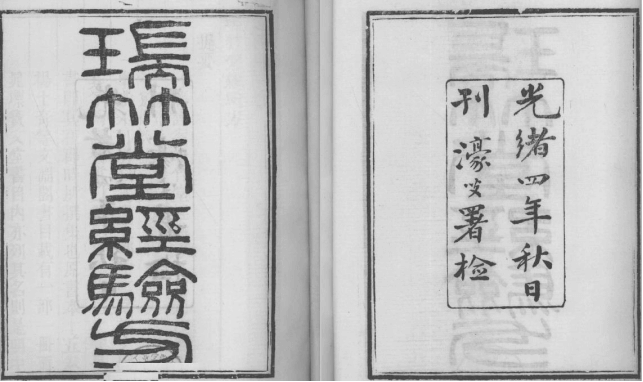 瑞竹堂經驗方
光緒四年秋日
刊 濠叟署检